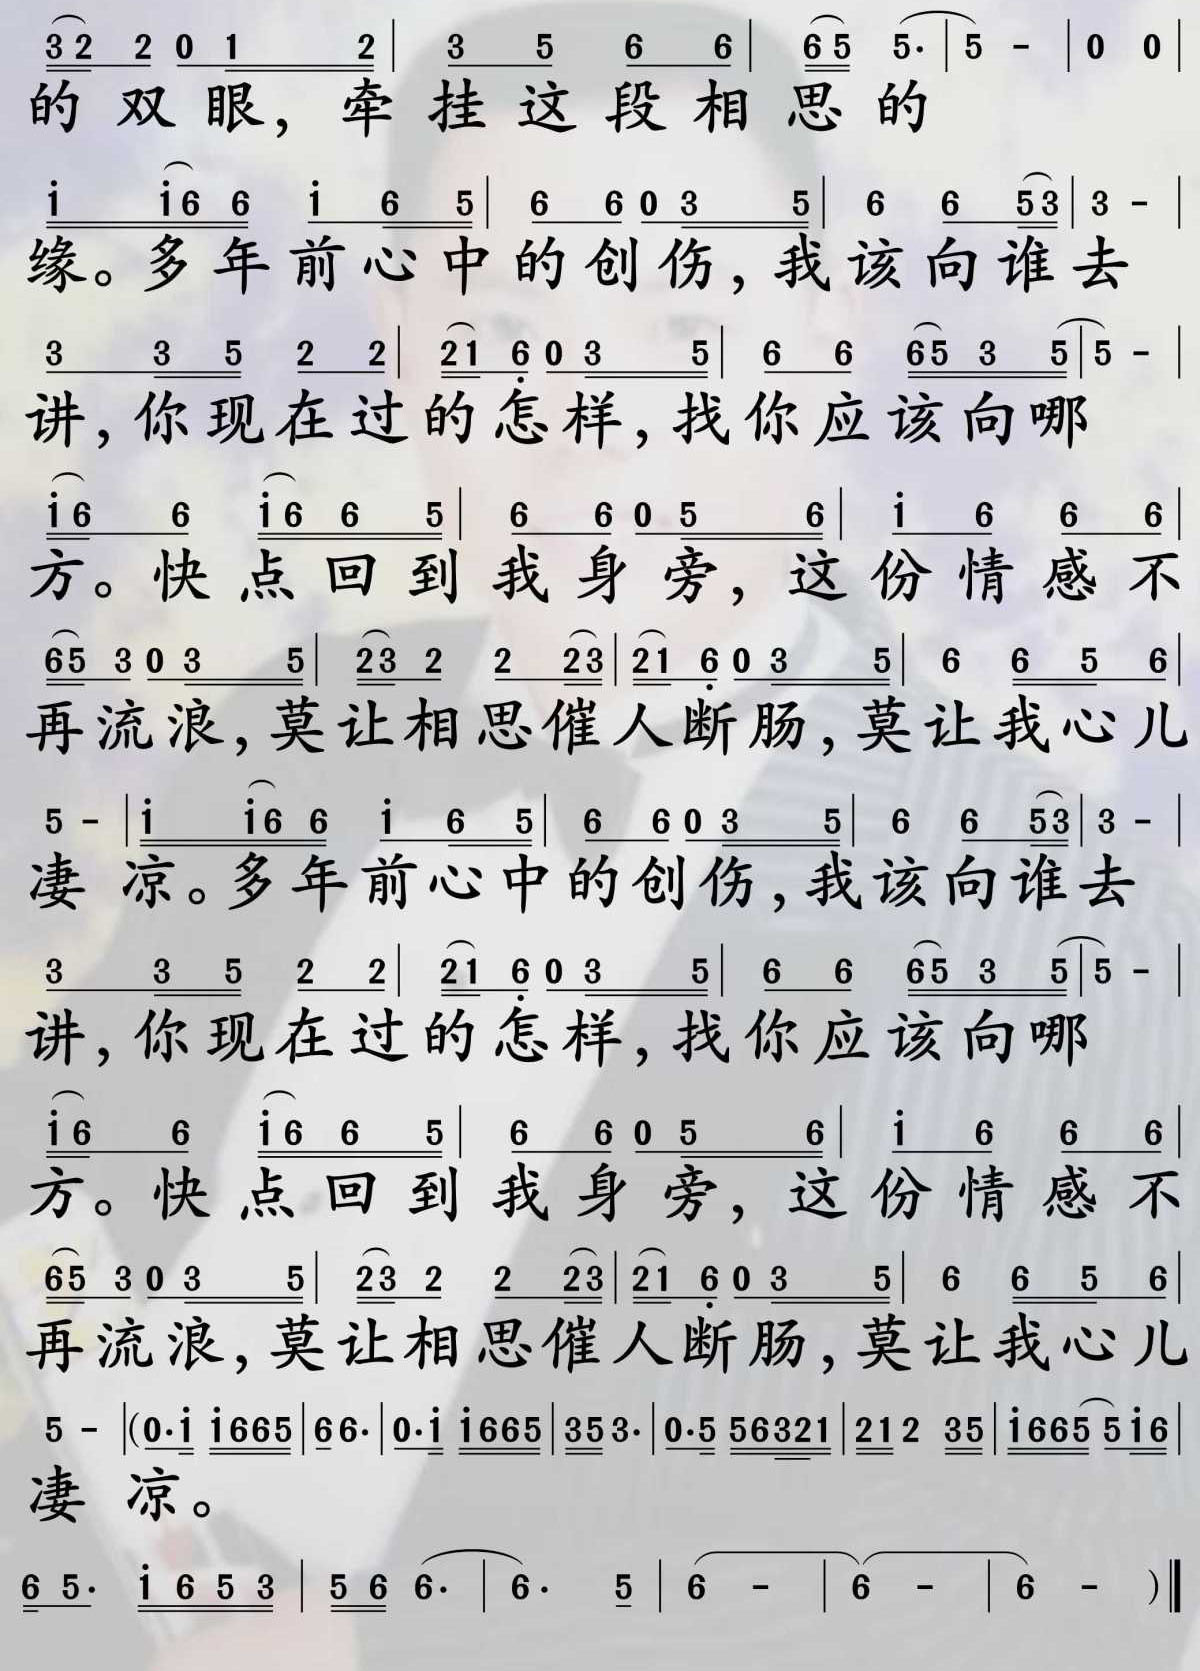 3 2 2 0 1 2 | 3 5 6 6 | 6 5 5· | 5 - | 0 0 |
的双眼，牵挂这段相思的
i i 6 6 i 6 5 | 6 6 0 3 5 | 6 6 5 3 | 3 - |
缘。多年前心中的创伤，我该向谁去
3 3 5 2 2 | 2 1 6 0 3 5 | 6 6 6 5 3 5 | 5 - |
讲，你现在过的怎样，找你应该向哪
i 6 6 i 6 6 5 | 6 6 0 5 6 | i 6 6 6 |
方。快点回到我身旁，这份情感不
6 5 3 0 3 5 | 2 3 2 2 2 3 | 2 1 6 0 3 5 | 6 6 5 6 |
再流浪，莫让相思催人断肠，莫让我心儿
5 - | i i 6 6 i 6 5 | 6 6 0 3 5 | 6 6 5 3 | 3 - |
凄凉。多年前心中的创伤，我该向谁去
3 3 5 2 2 | 2 1 6 0 3 5 | 6 6 6 5 3 5 | 5 - |
讲，你现在过的怎样，找你应该向哪
i 6 6 i 6 6 5 | 6 6 0 5 6 | i 6 6 6 |
方。快点回到我身旁，这份情感不
6 5 3 0 3 5 | 2 3 2 2 2 3 | 2 1 6 0 3 5 | 6 6 5 6 |
再流浪，莫让相思催人断肠，莫让我心儿
5 - | (0·i i665 | 6 6· | 0·i i665 | 35 3· | 0·5 56321 | 21 2 35 | i665 5i6 |
凄凉。
6 5· i 6 5 3 | 5 6 6· | 6· 5 | 6 - | 6 - | 6 - ) ‖